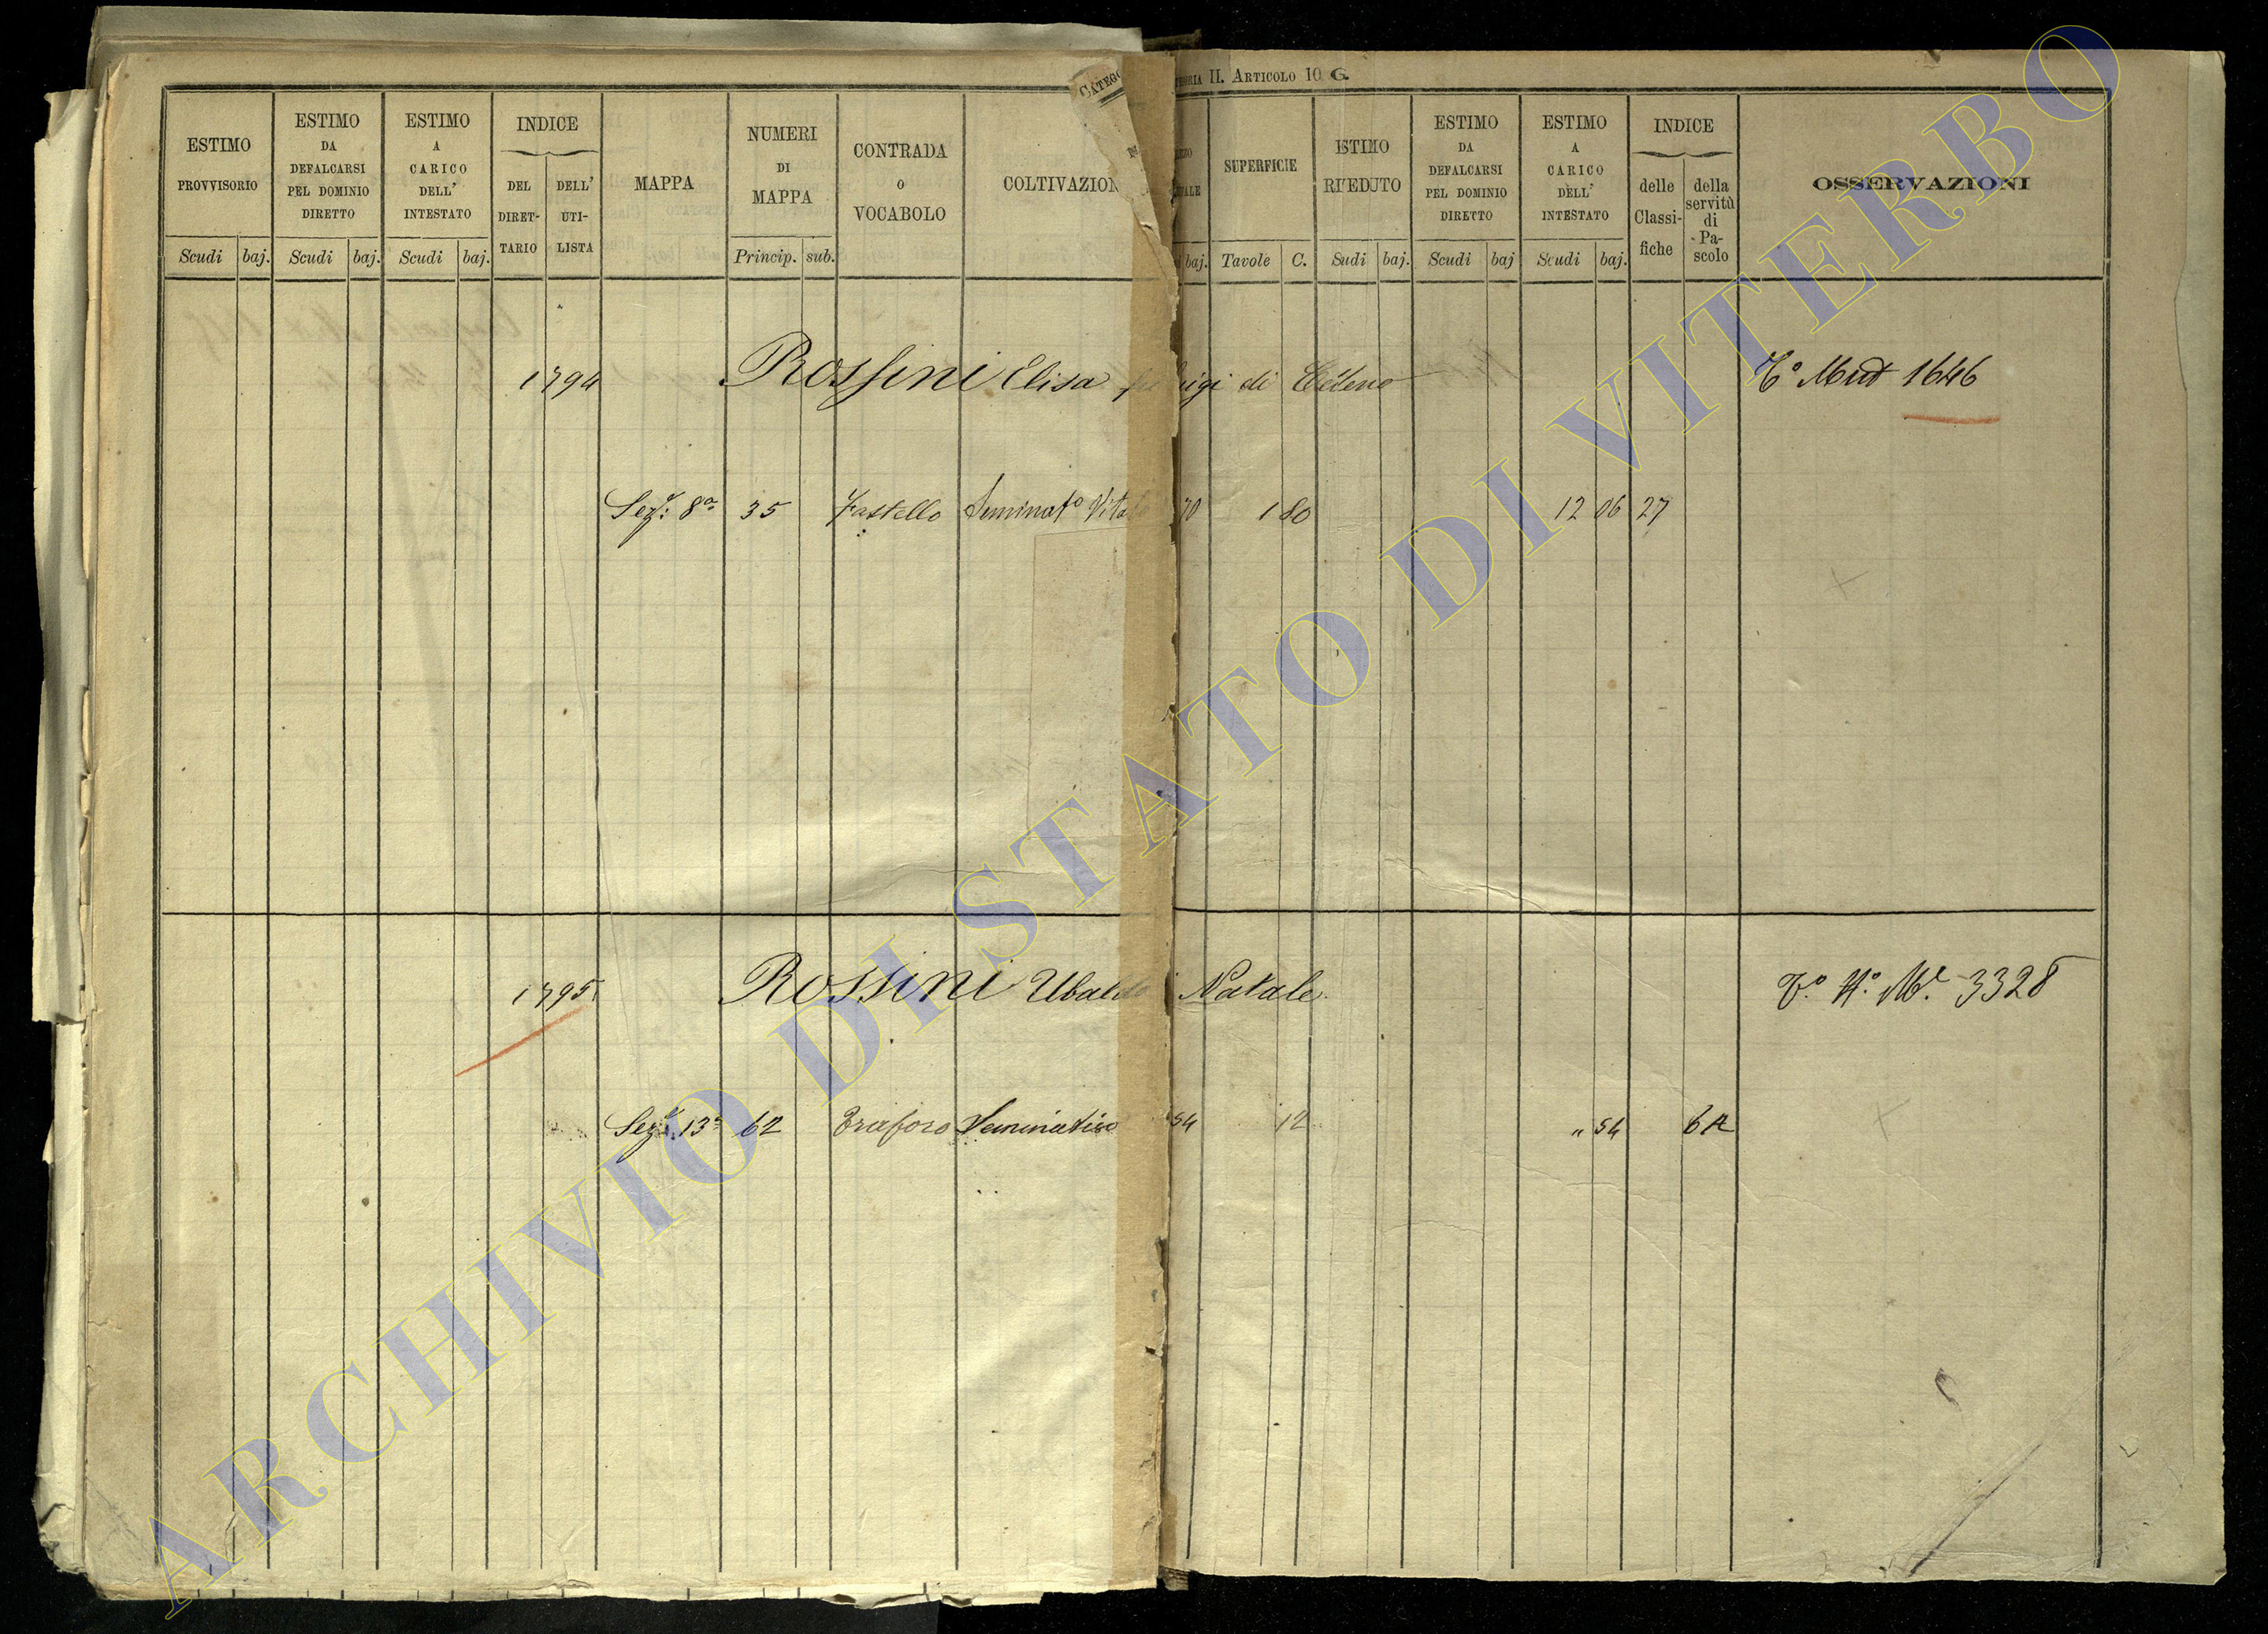 CATEGO
EGORIA II. ARTICOLO 10 G.
ESTIMO PROVVISORIO
Scudi baj.
ESTIMO DA DEFALCARSI PEL DOMINIO DIRETTO
Scudi baj.
ESTIMO A CARICO DELL' INTESTATO
Scudi baj.
INDICE
DEL DIRET- TARIO
DELL' UTI- LISTA
MAPPA
NUMERI DI MAPPA
Princip. sub.
CONTRADA O VOCABOLO
COLTIVAZION
ALE
baj.
SUPERFICIE
Tavole C.
ESTIMO RIVEDUTO
Scudi baj.
ESTIMO DA DEFALCARSI PEL DOMINIO DIRETTO
Scudi baj
ESTIMO A CARICO DELL' INTESTATO
Scudi baj.
INDICE
delle Classi- fiche
della servitù di Pa- scolo
OSSERVAZIONI
1794 Rossini Elisa Luigi di Celleno Mut 1646
Sez: 8a 35 Seminato Vita 70 1 80 12 06 27
1795 Rossini Ubaldo Natale 3328
Sez 13a 62 Traforo Seminativo 54 12 " 54 6A
ARCHIVIO DI STATO DI VITERBO